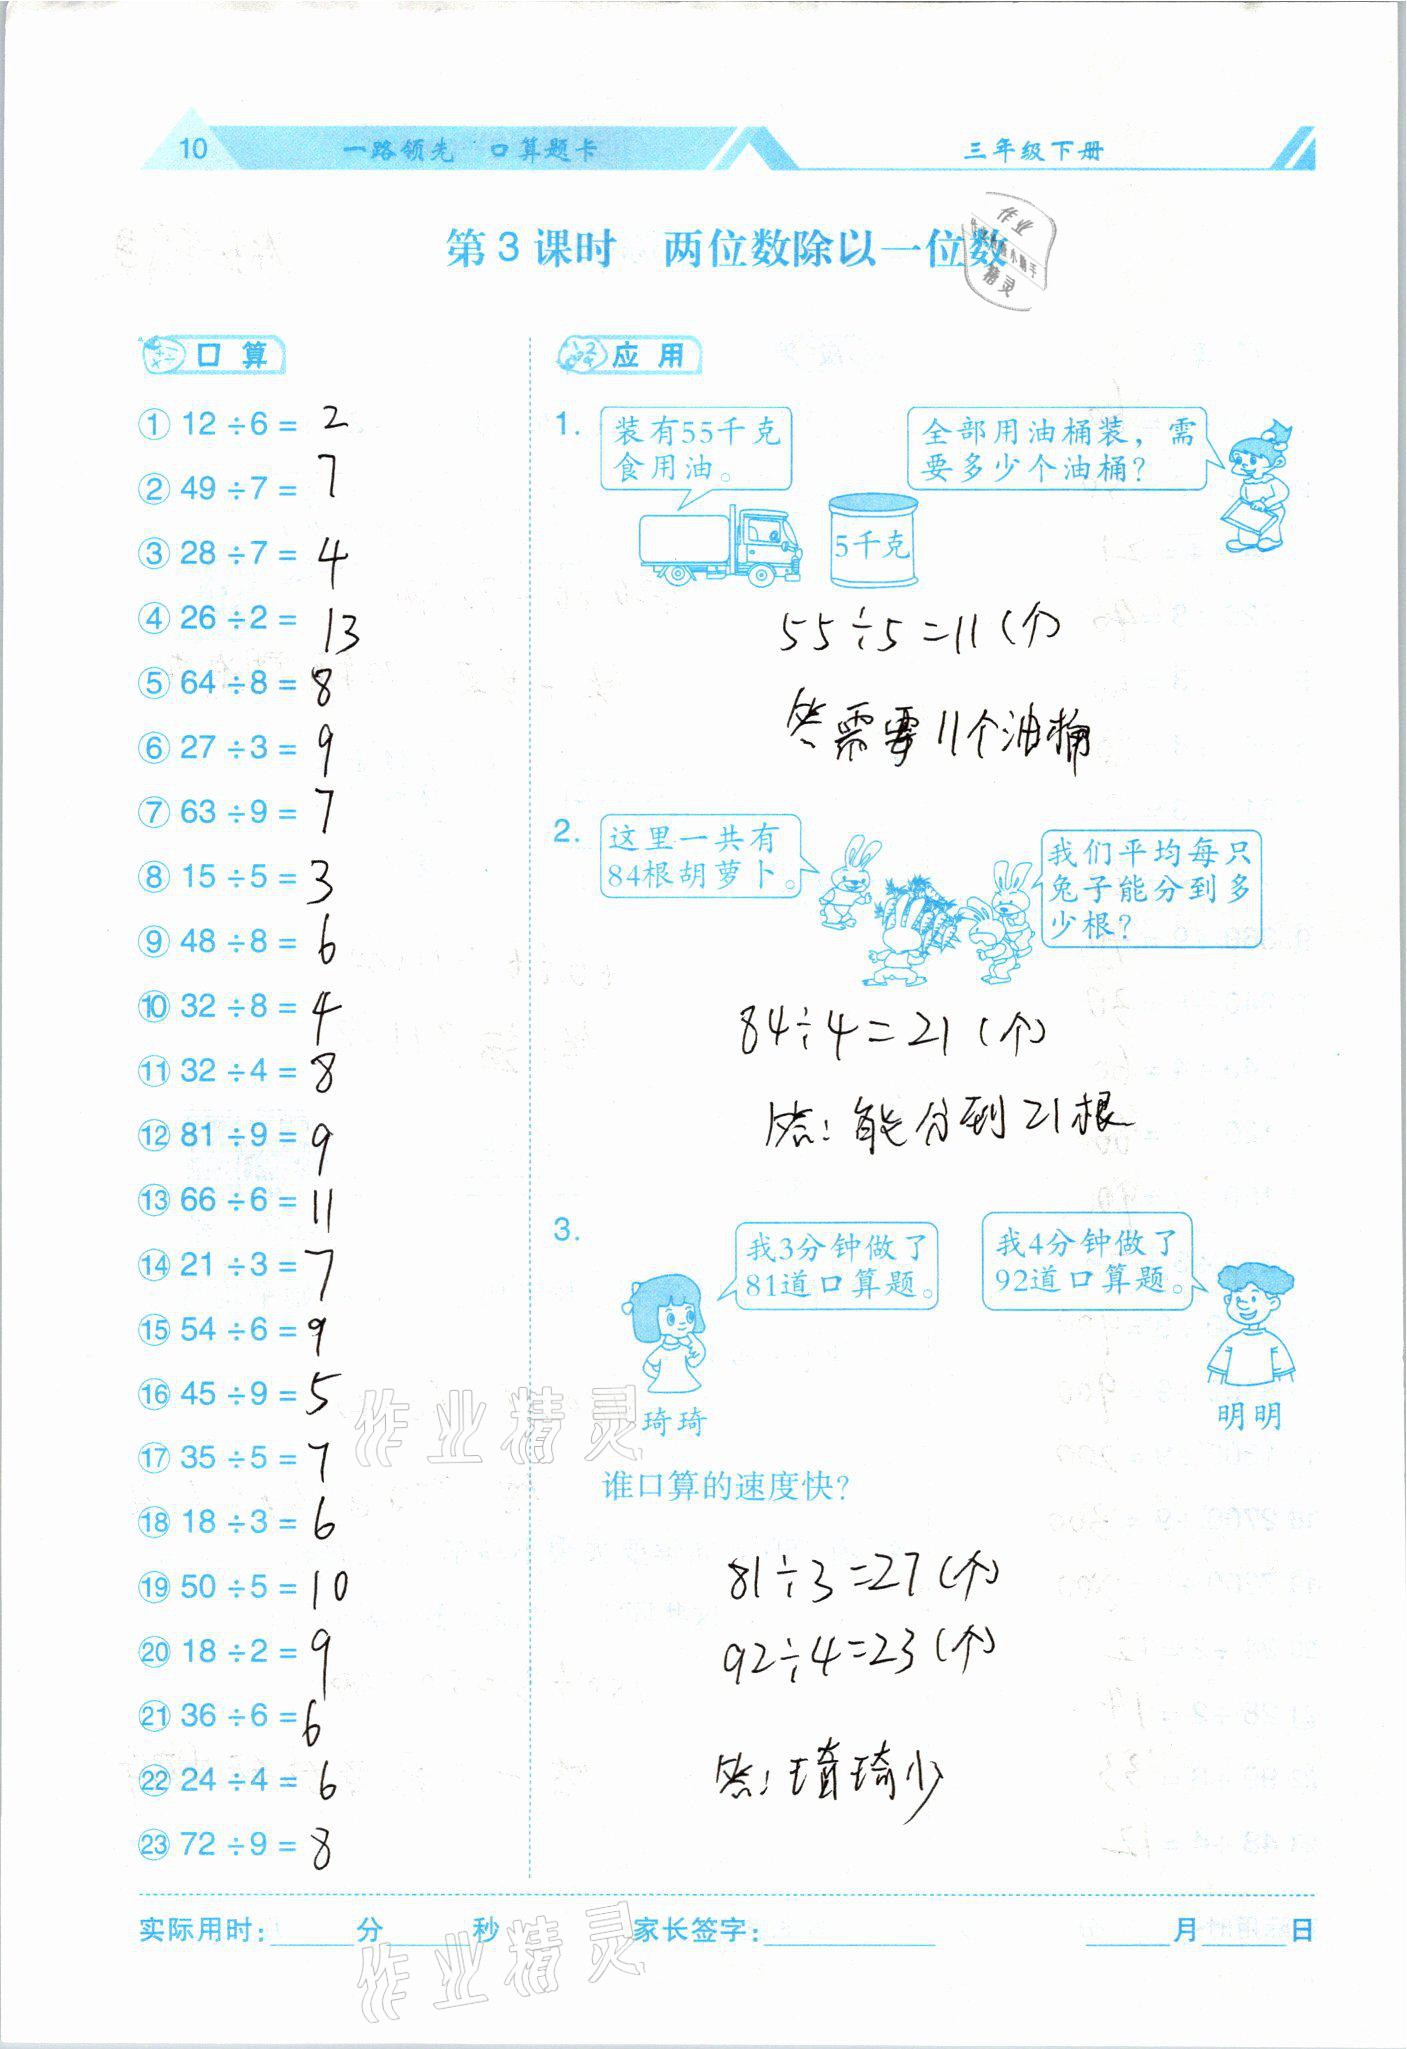 10
一路领先 口算题卡
三年级下册
第3课时 两位数除以一位数
口算
① 12÷6= 2
② 49÷7= 7
③ 28÷7= 4
④ 26÷2= 13
⑤ 64÷8= 8
⑥ 27÷3= 9
⑦ 63÷9= 7
⑧ 15÷5= 3
⑨ 48÷8= 6
⑩ 32÷8= 4
⑪ 32÷4= 8
⑫ 81÷9= 9
⑬ 66÷6= 11
⑭ 21÷3= 7
⑮ 54÷6= 9
⑯ 45÷9= 5
⑰ 35÷5= 7
⑱ 18÷3= 6
⑲ 50÷5= 10
⑳ 18÷2= 9
㉑ 36÷6= 6
㉒ 24÷4= 6
㉓ 72÷9= 8
应用
1.
装有55千克
食用油。
全部用油桶装，需
要多少个油桶？
5千克
55÷5=11(个)
答需要11个油桶
2.
这里一共有
84根胡萝卜。
我们平均每只
兔子能分到多
少根？
84÷4=21(个)
答：能分到21根
3.
我3分钟做了
81道口算题。
我4分钟做了
92道口算题。
琦琦
明明
谁口算的速度快？
81÷3=27(个)
92÷4=23(个)
答：琦琦少
实际用时： 分 秒 家长签字： 月 日
作业精灵
作业精灵
作业
精灵